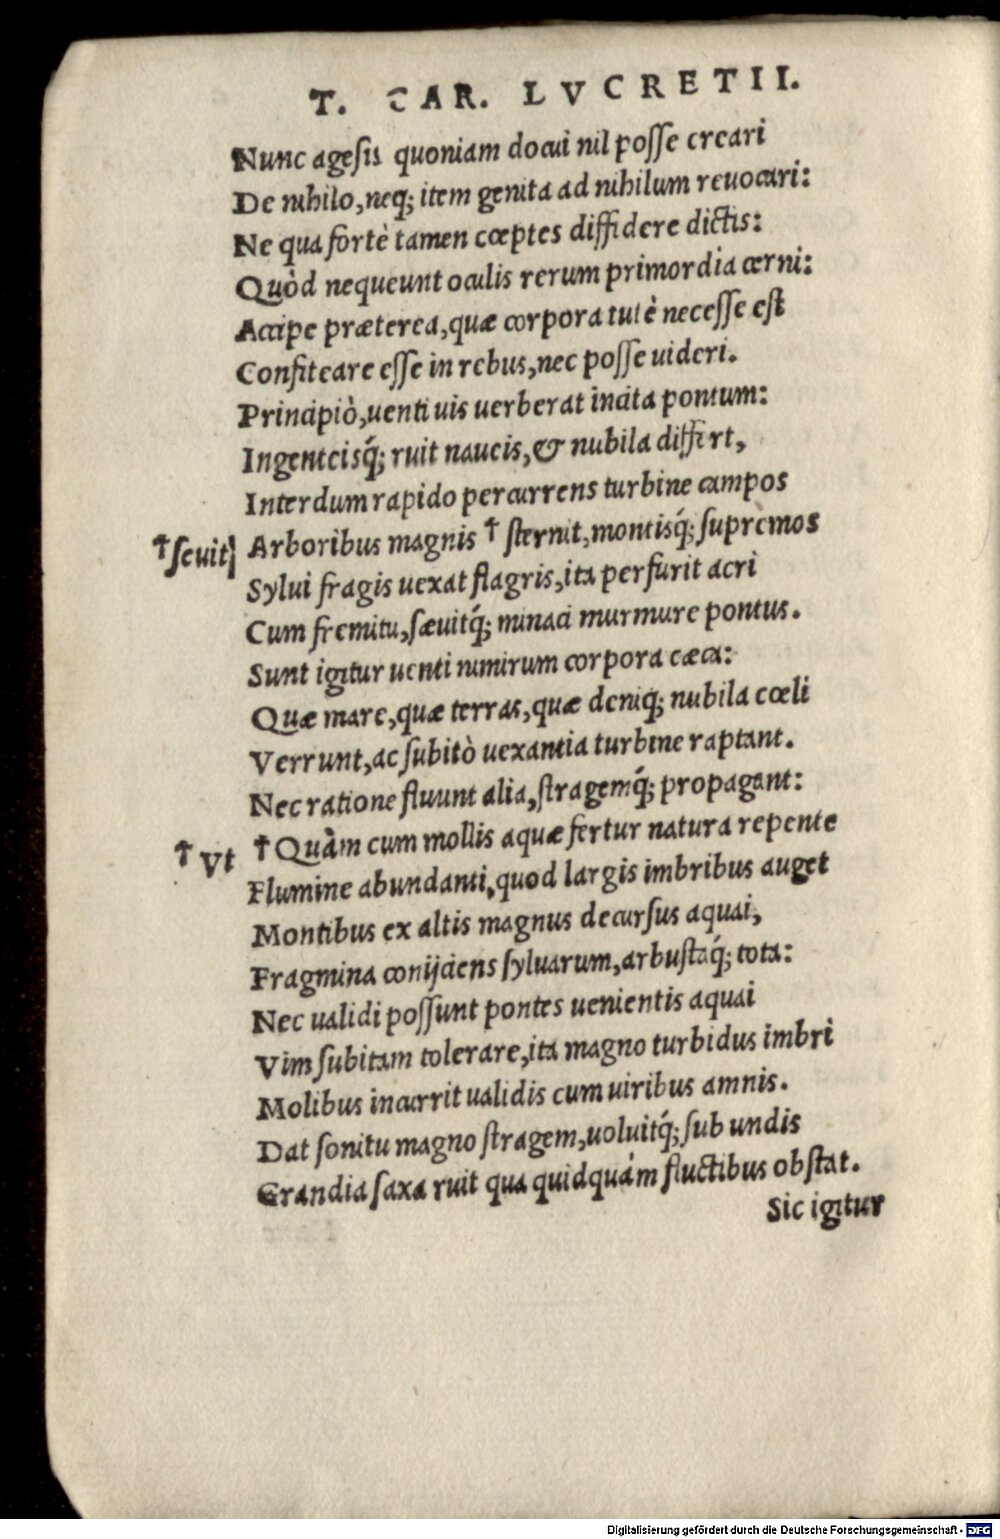 T. CAR. LVCRETII.
Nunc agesis quoniam docui nil posse creari
De nihilo, neq; item genita ad nihilum reuocari:
Ne qua fortè tamen cœptes diffidere dictis:
Quòd nequeunt oculis rerum primordia cerni:
Accipe præterea, quæ corpora tutè necesse est
Confiteare esse in rebus, nec posse uideri.
Principiò, uenti uis uerberat incita pontum:
Ingenteisq́; ruit naueis, & nubila differt,
Interdum rapido percurrens turbine campos
†seuit] Arboribus magnis † sternit, montisq́; suprèmos
Sylui fragis uexat flagris, ita perfurit acri
Cum fremitu, sæuitq́; minaci murmure pontus.
Sunt igitur uenti nimirum corpora cæca:
Quæ mare, quæ terras, quæ deniq; nubila cœli
Verrunt, ac subitò uexantia turbine raptant.
Nec ratione fluunt alia, stragemq́; propagant:
† Vt † Quàm cum mollis aquæ fertur natura repente
Flumine abundanti, quod largis imbribus auget
Montibus ex altis magnus decursus aquai,
Fragmina conijciens syluarum, arbustaq́; tota:
Nec ualidi possunt pontes uenientis aquai
Vim subitam tolerare, ita magno turbidus imbri
Molibus incurrit ualidis cum uiribus amnis.
Dat sonitu magno stragem, uoluitq́; sub undis
Grandia saxa ruit qua quidquám fluctibus obstat.
Sic igitur
Digitalisierung gefördert durch die Deutsche Forschungsgemeinschaft - DFG